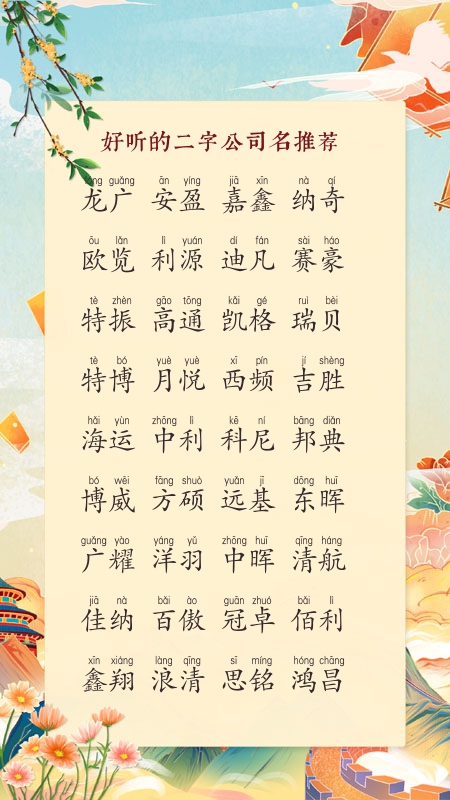 好听的二字公司名推荐
lóng guǎng ān yíng jiā xīn nà qí
龙广 安盈 嘉鑫 纳奇
ōu lǎn lì yuán dí fán sài háo
欧览 利源 迪凡 赛豪
tè zhèn gāo tōng kǎi gé ruì bèi
特振 高通 凯格 瑞贝
tè bó yuè yuè xī pín jí shèng
特博 月悦 西频 吉胜
hǎi yùn zhōng lì kē ní bāng diǎn
海运 中利 科尼 邦典
bó wēi fāng shuò yuǎn jī dōng huī
博威 方硕 远基 东晖
guǎng yào yáng yǔ zhōng huī qīng háng
广耀 洋羽 中晖 清航
jiā nà bǎi ào guān zhuó bǎi lì
佳纳 百傲 冠卓 佰利
xīn xiáng làng qīng sī míng hóng chāng
鑫翔 浪清 思铭 鸿昌